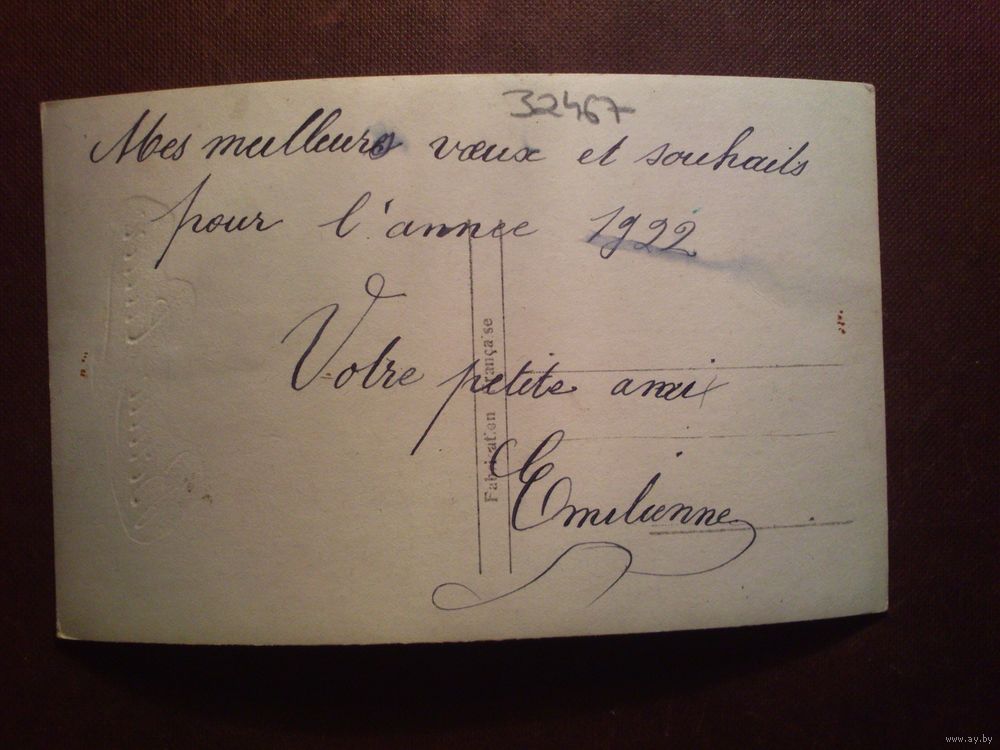 32467
Mes meilleurs vœux et souhaits
pour l'année 1922
Votre petite amie
Emilienne
Fabrication Française
www.ay.by